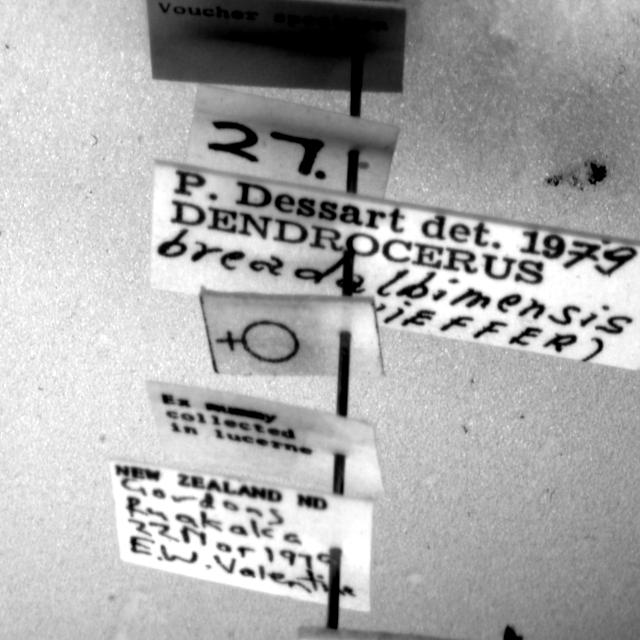 Voucher specimen
27.
P. Dessart det. 1979
DENDROCERUS
breadalbimensis
(KIEFFER)
♀
Ex mummy
collected
in lucerne
NEW ZEALAND ND
Gordons
Ruakaka
22 Nor 1976
E.W. Valentine